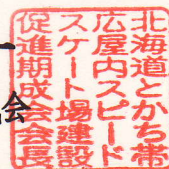 北海道とかち帯
広屋内スピード
スケート場建設
促進期成会会長
会